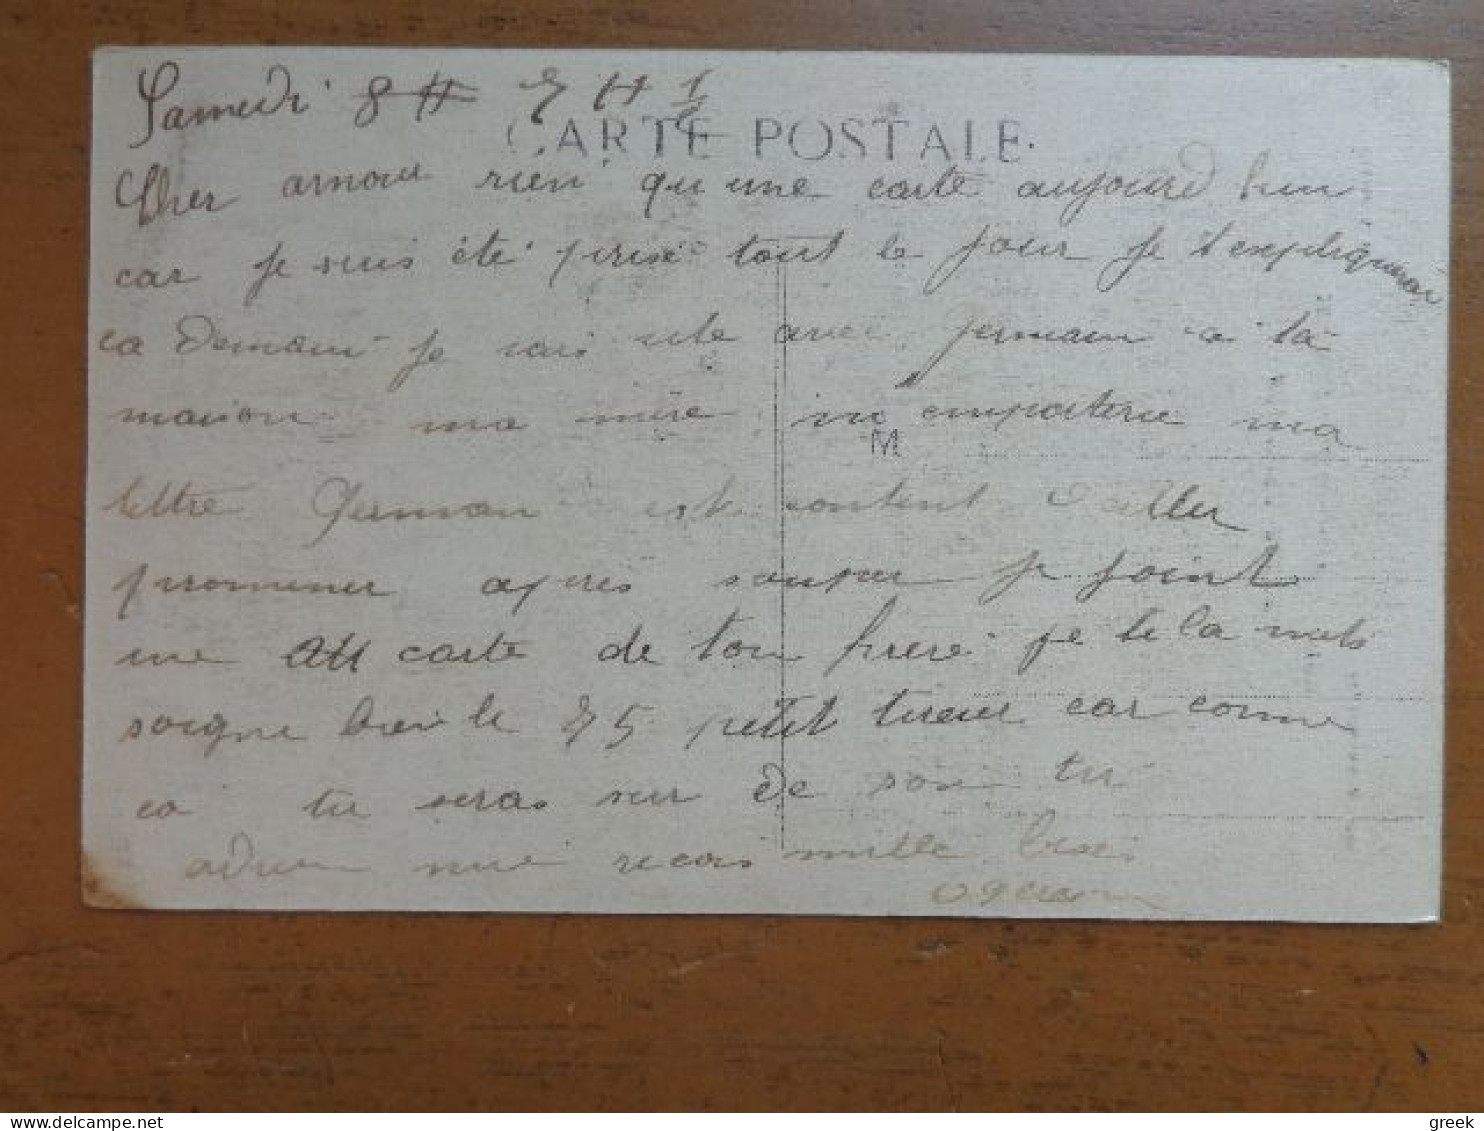 Samedi 8 H 7 H 1/2
CARTE POSTALE
Cher amour rien qu une carte aujourd hui
car je suis été prise tout le jour je t expliquerai
ca demain je vais vite avec Germain a la
maison ma mère M emporterie ma
lettre German est content d aller
promener après souper je joint
une carte de ton frere je te la mets
soigne bien le 75 petit car comme
ca tu seras sur de
recois mille
greek